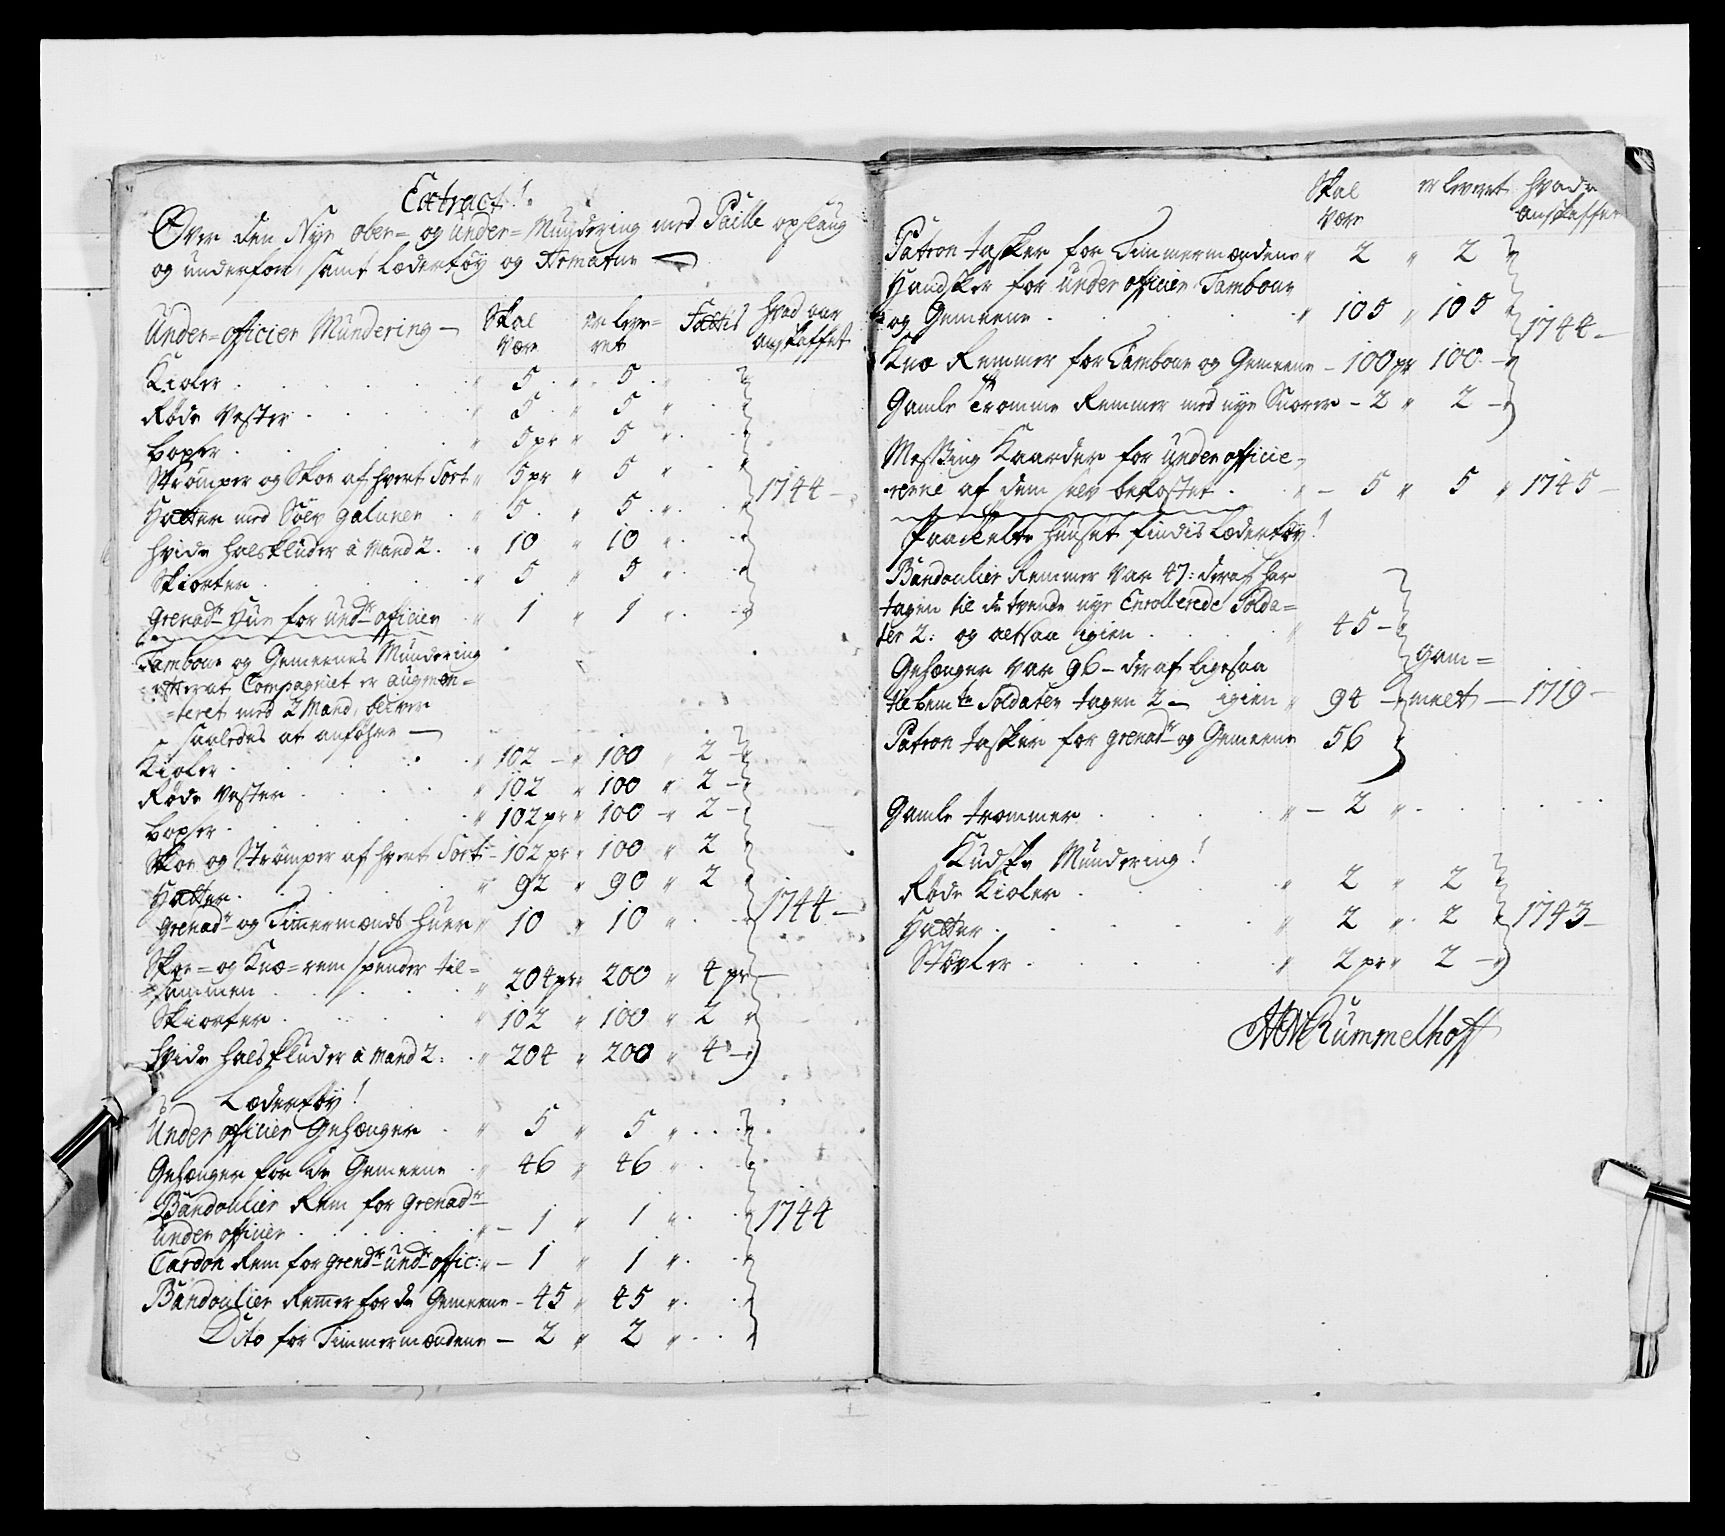 Extract!
Over den Nye ober= og under= Mundering med Paille opslaug
og underfor, samt Lædertøy og Armatue
Under=officier Mundering — Skal være er leve=ret Fattis hvad aar anskaffet
Kioler . . . 5 . 5
Røde Vester . . 5 . 5
Boxer . . . 5 pr 5
Strømper og Skoe af hvert Sort 5 pr 5
1744 —
Hatter med Sølv galuner 5 . 5
hvide halsklüder à Mand 2. 10 10
Skiorter . . . 5 5
grenadr Hue for undr officier 1 1
Tambour og Gemeenes Mundering
efterat Compagniet er augmen=
=teret med 2 Mand, bliver
saaledes at anføhre —
Kioler . . . 102 — 100 2 —
Røde Vester . . . 102 100 2 —
Boxer . . . 102 pr 100 — 2 —
Skoe og Strømper af hvert Sort 102 pr 100 2
Hatter . . . 92 90 2
1744 —
grenadr og Timmermænds Huer 10 10
Skoe= og Knæ=rem spender til=
=sammen . . . 204 pr 200 4 pr —
Skiorter . . . 102 100 2
hvide halsklüder à Mand 2: 204 200 4 —
Lædertøy!
Under officier Gehænger . 5 5
Gehænger for de Gemeene 46 46
Bandoulier Rem for grenadr
under officier . . . — 1 1 1744
Cardon Rem for grendr undr offic: — 1 1
Bandoulier Remer for de Gemeene — 45 45
Dito for Timmermændene — 2 2
Skal være er levret hvad anskaffet
Patron tasker for Timmermændene 2 2
Handsker for under officier, Tambour
og Gemeene . . . 105 105
1744 —
Knæ Remmer for Tambour og Gemeene — 100 pr 100 —
Gamle Tromme Remmer med nye Snorer — 2 2 —
Messing Kaarder for under officie=
rerne af dem selv bekostet . — 5 5 1745 —
Paa Telte Huuset findis Lædertøy!
Bandoulier Remmer var 47: deraf har
tagen til de tvende nye Enrollerede Solda=
ter 2: og altsaa igien . . . 45 —
Gehænger var 96 — deraf ligesaa gam=
til bem te Soldater tagen 2 — igien 94 — melt — 1719 —
Patron tasker for grenadr og Gemeene 56
Gamle trommer . . . — 2 . . .
Kudske Mundering!
Røde Kioler . . . 2 2
Hatter . . . 2 2 1743 —
Støvler . . . 2 pr 2 —
Rummelhoff